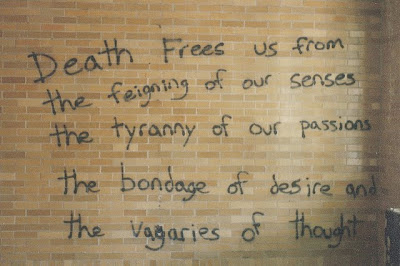 Death Frees us from
the feigning of our senses
the tyranny of our passions
the bondage of desire and
the vagaries of thought